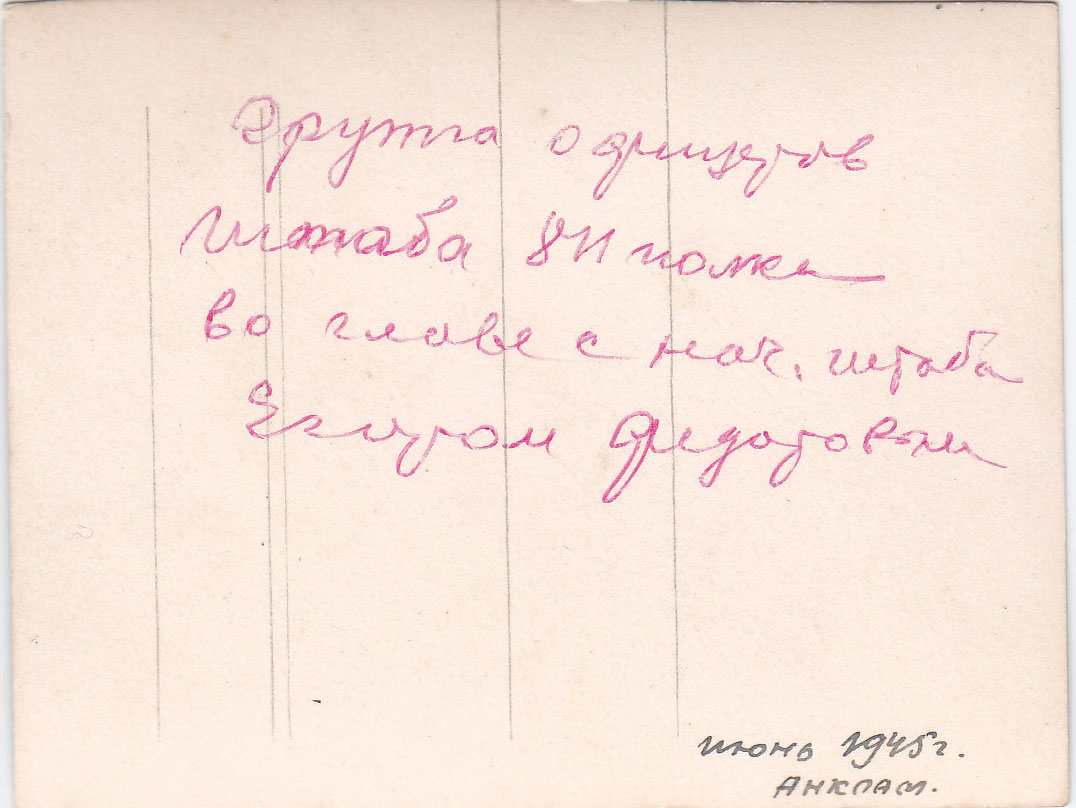 Группа офицеров
штаба 811 полка
во главе с нач. штаба
Федотовым
июнь 1945г.
Анклам.